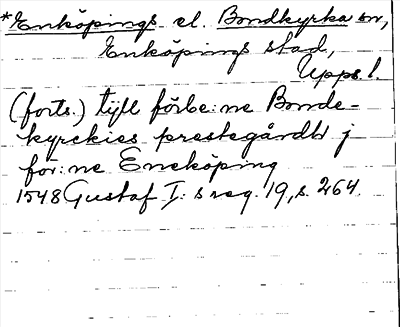 *Enköpings el. Bondkyrka sn,
Enköpings stad,
Upps l.
(forts.) tijll förbe:ne Bonde-
kyrckies prestegårdh j
för:ne Eneköping
1548 Gustaf I:s reg. 19, s. 264.